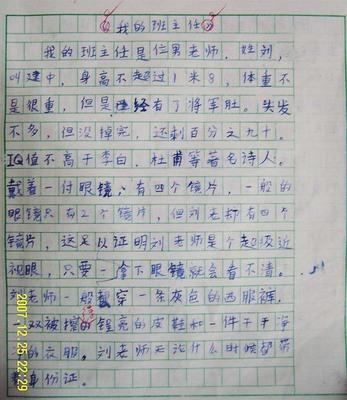 我的班主任
我的班主任是位男老师，姓刘，
叫建中，身高不超过1米8，体重不
是很重，但是已经有了将军肚。头发
不多，但没掉完，还剩百分之九十。
IQ值不高于李白，杜甫等著名诗人。
戴着一付眼镜，有四个镜片，一般的
眼镜只有2个镜片，但刘老师有四个
镜片，这足以证明刘老师是个超级近
视眼，只要一拿下眼镜就会看不清。
刘老师一般穿一条灰色的西服裤，
一双被擦的锃亮的皮鞋和一件干干净
净的衣服。刘老师无论什么时候都带
着身份证。
2007.12.25 22:29